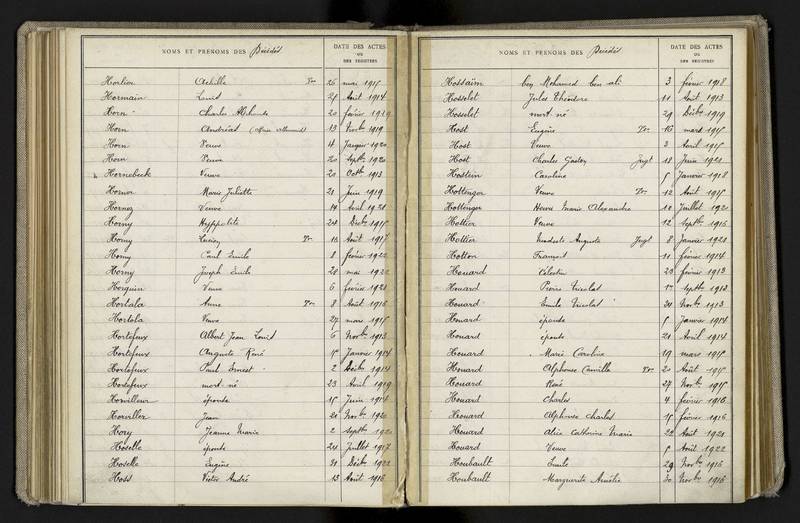 NOMS ET PRÉNOMS DES Décédés
DATE DES ACTES
OU
DES REGISTRES
Horlier Achille Tr 26 mai 1915
Hormain Louis 28 Août 1914
Horn Charles Alphonse 20 février 1919
Horn Andréas 13 Novbre 1919
Horn Veuve 4 Janvier 1920
Horn Veuve 20 Septbre 1920
Hornebeck Veuve 20 Octbre 1913
Marie Juliette 21 Juin 1919
Hornez Veuve 14 Avril 1921
Horny Hyppolite 24 Décbre 1915
Horny Lucien Tr 16 Août 1917
Horny Paul Emile 8 février 1922
Horny Joseph Emile 28 mai 1922
Horquin Veuve 6 février 1921
Hortala Anne Tr 8 Août 1916
Hortola Veuve 27 mars 1915
Hortefeux Albert Jean Louis 6 Novbre 1913
Hortefeux Auguste René Janvier 1914
Hortefeux Paul Ernest 2 Décbre 1914
Hortefeux mort né 23 Avril 1919
Horvilleur épouse 15 Juin 1914
Horviller Jean 21 Novbre 1920
Hory Jeanne Marie 2 Septbre
Hoselle épouse 24 Juillet 1917
Hoselle Eugène 31 Décbre 1922
Hoss Victor André 13 Août 1916
NOMS ET PRÉNOMS DES Décédés
DATE DES ACTES
OU
DES REGISTRES
Hossaïm ben Mohamed ben ali 3 février 1918
Hosselet Jules Théodore 11 Août 1913
Hosselet mort né 29 Décbre 1919
Host Eugène Tr 16 mars 1915
Host Veuve 2 Avril 1915
Host Charles Gaston Jugt 18 Juin 1921
Hostein Caroline 5 Janvier 1918
Hottenger Veuve Tr 12 Août 1915
Hottenger Henri Marie Alexandre 10 Juillet 1921
Hottier Veuve 12 Septbre 1916
Hottier Modeste Auguste Jugt 8 Janvier 1921
Hotton François 11 février 1914
Houard Célestin 23 février 1913
Houard Pierre Nicolas 1er Septbre 1913
Houard Emile Nicolas 30 Novbre 1913
Houard épouse 5 Janvier 1914
Houard épouse 21 Avril 1914
Houard Marie Caroline 19 mars 1915
Houard Alphonse Camille Tr 20 Août 1915
Houard René 27 Novbre 1915
Houard Charles 4 février 1916
Houard Alphonse Charles 15 février 1916
Houard Alice Catherine Marie 22 Août 1921
Houard Veuve 5 Août 1922
Houbault Emile 29 Novbre 1916
Houbault Marguerite Amélie 30 Novbre 1916